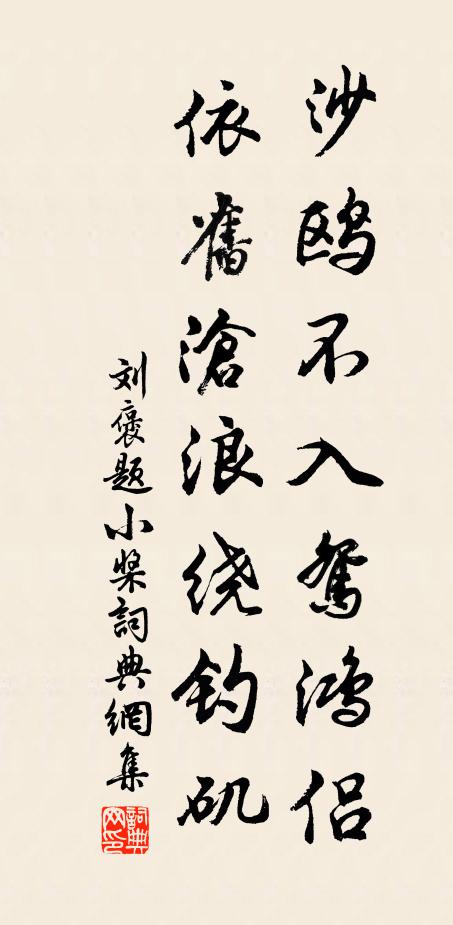 沙鸥不入鸳鸿侣
依舊滄浪绕钓矶
刘褒题小桨詞典網集
詞典網印